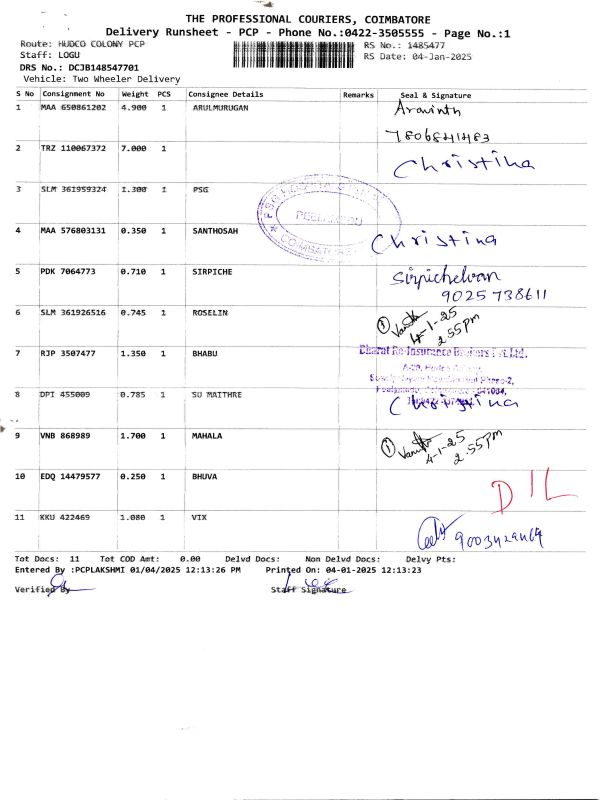 THE PROFESSIONAL COURIERS, COIMBATORE
Delivery Runsheet - PCP - Phone No.:0422-3505555 - Page No.:1
Route: HUDCO COLONY PCP RS No.: 1485477
Staff: LOGU RS Date: 04-Jan-2025
DRS No.: DCJB148547701
Vehicle: Two Wheeler Delivery
S No Consignment No Weight PCS Consignee Details Remarks Seal & Signature
1 MAA 650861202 4.900 1 ARULMURUGAN Aravinth
2 TRZ 110067372 7.000 1 Christina
3 SLM 361959324 1.300 1 PSG
4 MAA 576803131 0.350 1 SANTHOSAH Christina
5 PDK 7064773 0.710 1 SIRPICHE Sirpichelvan
9025738611
6 SLM 361926516 0.745 1 ROSELIN 4-1-25
2.55pm
7 RJP 3507477 1.350 1 BHABU Bharat Re-Insurance Brokers Pvt.Ltd.
8 DPI 455009 0.785 1 SU MAITHRE Christina
9 VNB 868989 1.700 1 MAHALA 4-1-25
2.55pm
10 EDQ 14479577 0.250 1 BHUVA DIL
11 KKU 422469 1.080 1 VIX
Tot Docs: 11 Tot COD Amt: 0.00 Delvd Docs: Non Delvd Docs: Delvy Pts:
Entered By :PCPLAKSHMI 01/04/2025 12:13:26 PM Printed On: 04-01-2025 12:13:23
Verified By Staff Signature